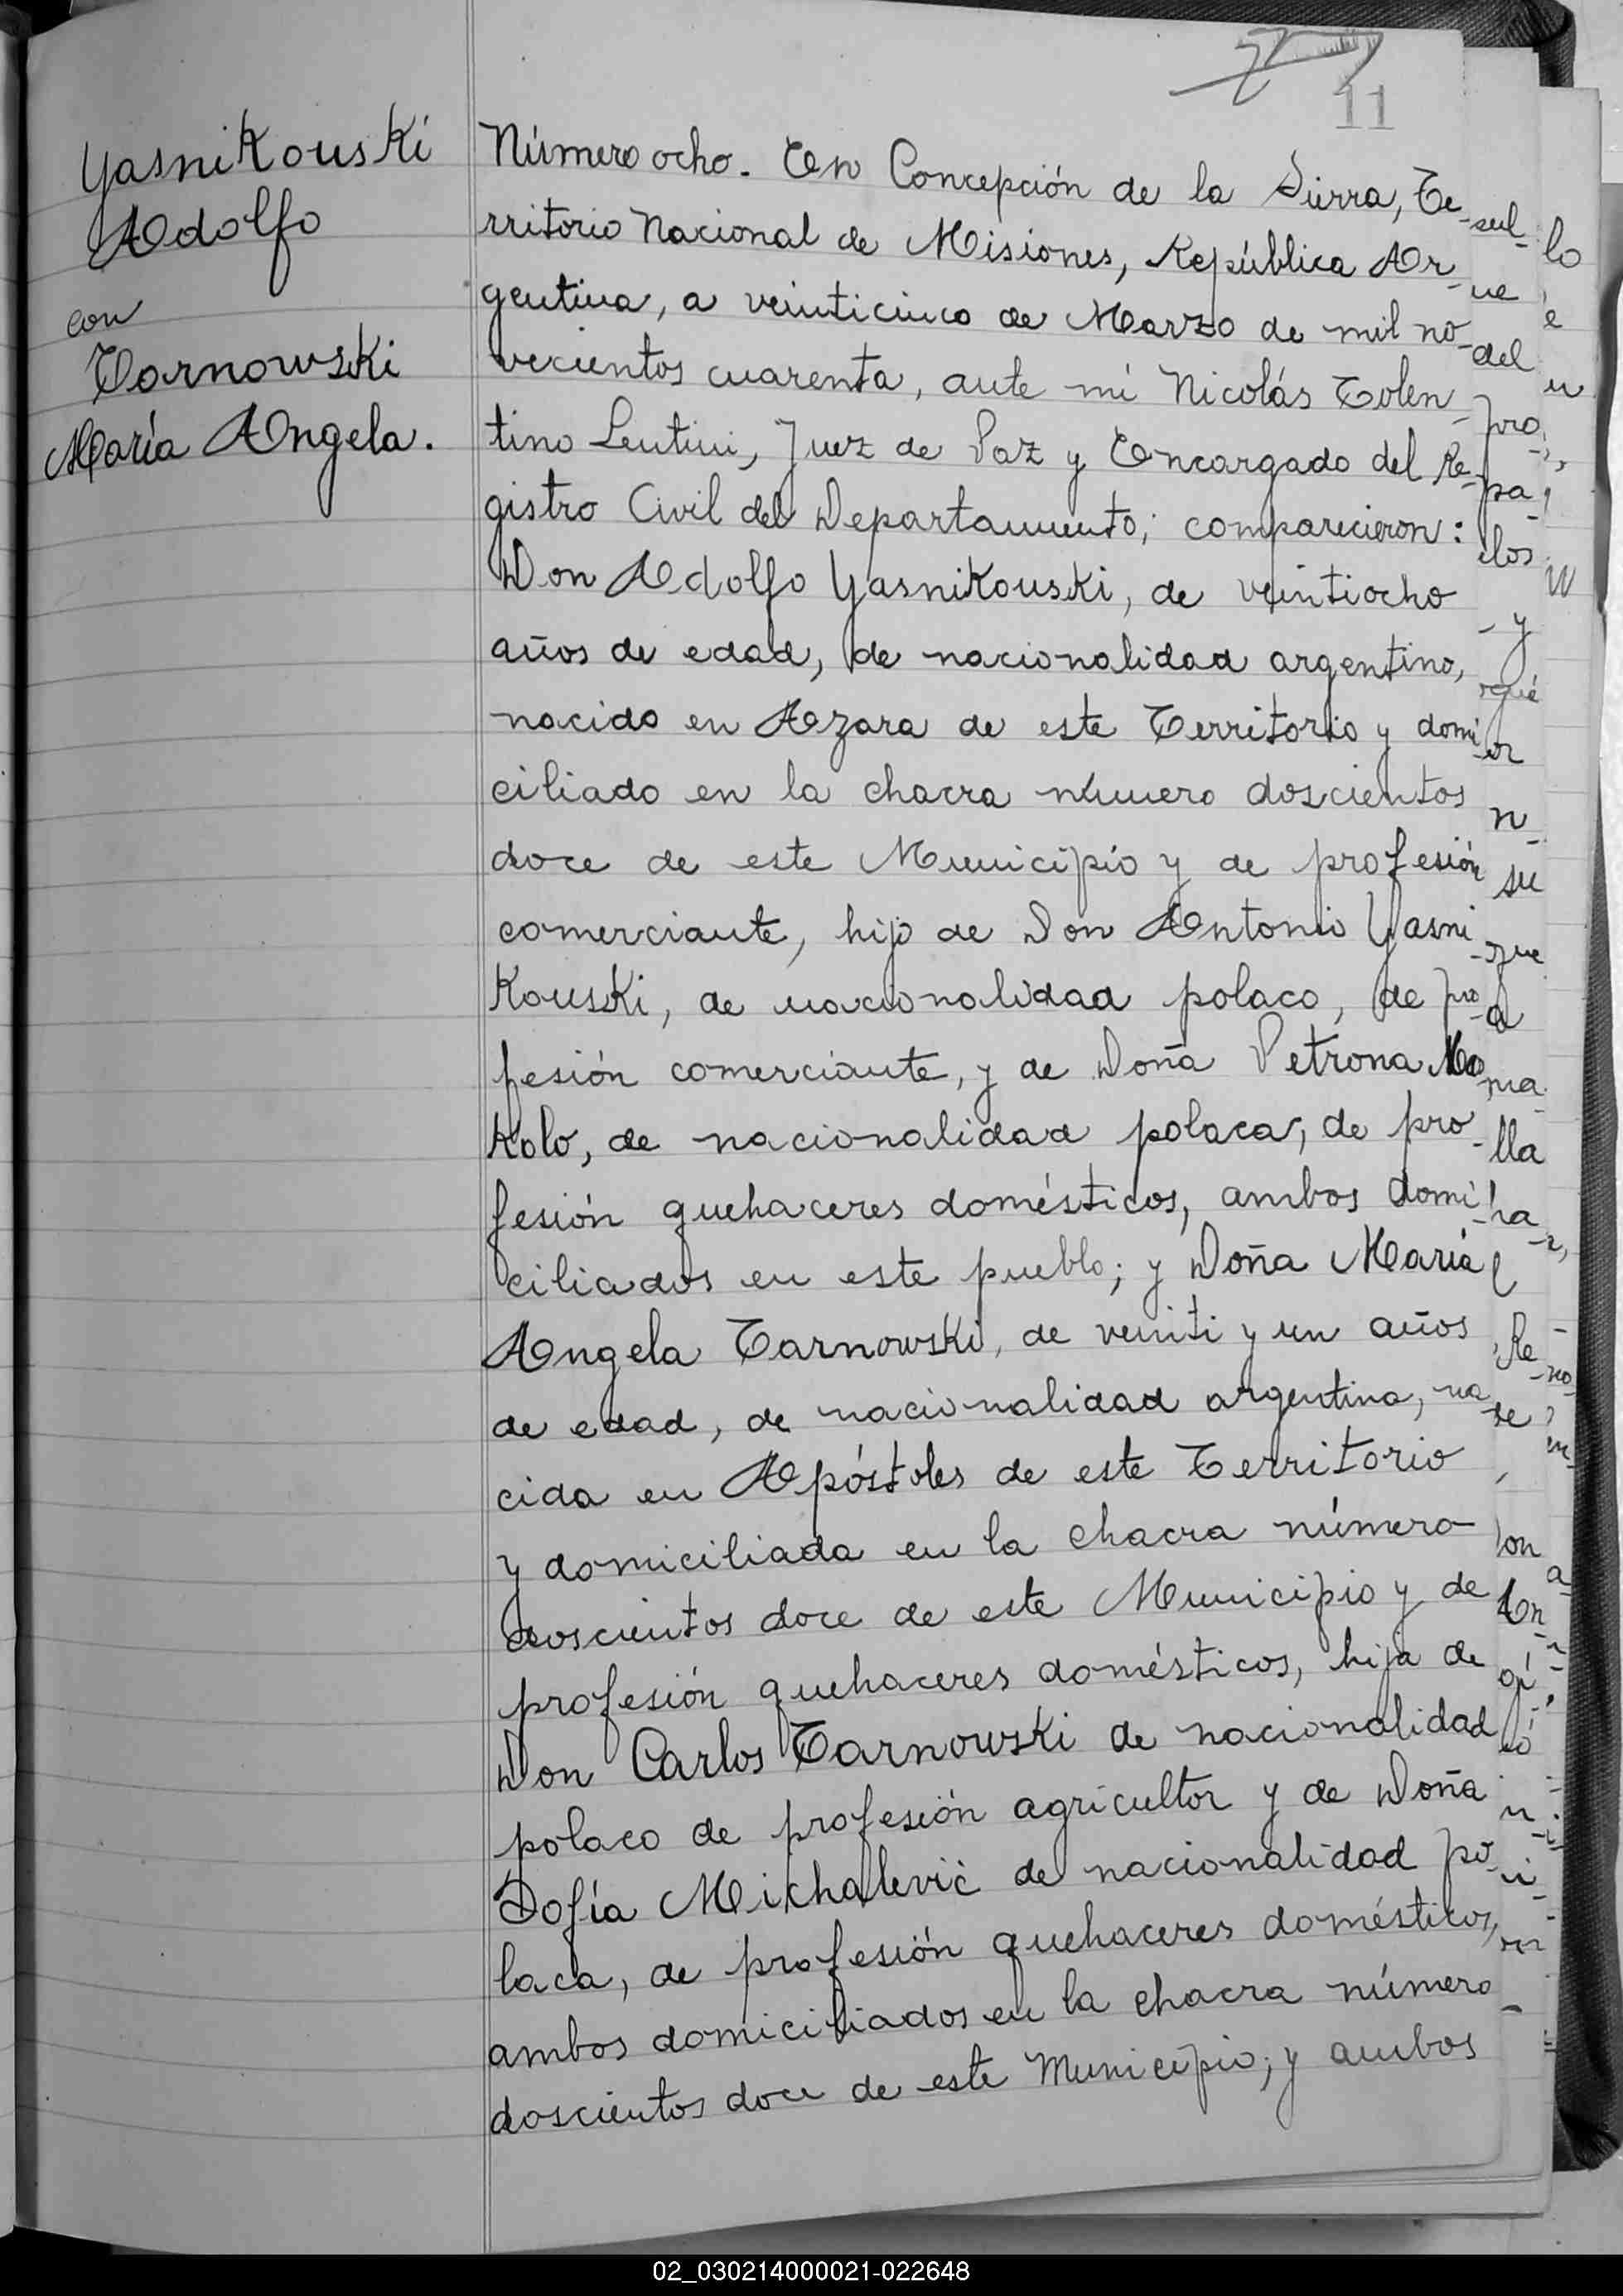 11
Yasnikouski
Adolfo
con
Tarnowski
María Angela.
Número ocho. En Concepción de la Sierra, Te
rritorio Nacional de Misiones, República Ar
gentina, a veinticinco de Marzo de mil no
vecientos cuarenta, ante mí Nicolás Tolen
tino Lentini, Juez de Paz y Encargado del Re
gistro Civil del Departamento; comparecieron:
Don Adolfo Yasnikouski, de veintiocho
años de edad, de nacionalidad argentino,
nacido en Azara de este Territorio y domi
ciliado en la chacra número doscientos
doce de este Municipio y de profesión
comerciante, hijo de Don Antonio Yasni
kouski, de nacionalidad polaco, de pro
fesión comerciante, y de Doña Petrona
kolo, de nacionalidad polaca, de pro
fesión quehaceres domésticos, ambos domi
ciliados en este pueblo; y Doña María
Angela Tarnowski, de veinti y un años
de edad, de nacionalidad argentina, na
cida en Apóstoles de este Territorio
y domiciliada en la chacra número
doscientos doce de este Municipio y de
profesión quehaceres domésticos, hija de
Don Carlos Tarnowski de nacionalidad
polaco de profesión agricultor y de Doña
Sofía Michalevic de nacionalidad po
laca, de profesión quehaceres domésticos,
ambos domiciliados en la chacra número
doscientos doce de este Municipio; y ambos
02_030214000021-022648